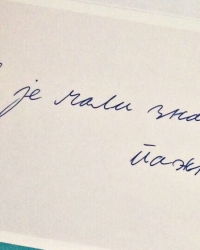 је мали зна
пажњ